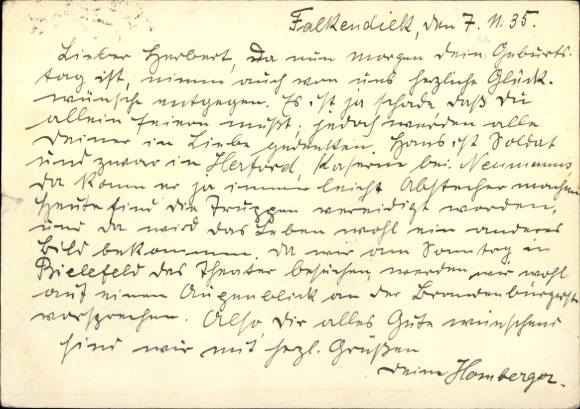 Falkendiek, den 7.11.35.
Lieber Herbert, Da nun morgen dein Geburts-
tag ist, nimm auch von uns herzliche Glück-
wünsche entgegen. Es ist ja schade daß du
allein feiern mußt, jedoch werden alle
Deiner in Liebe gedenken. Hans ist Soldat
und zwar in Herford, Kaserne bei Neumanns
da kann er ja immer leicht Abstecher machen
Heute sind die Truppen vereidigt worden,
und da wird das Leben wohl ein anderes
Bild bekommen. Da wir am Sonntag in
Bielefeld das Theater besuchen, werden wir wohl
auf einen Augenblick an der Brandenburgerstr
vorsprechen. Also, Dir alles Gute wünschend
sind wir mit herzl. Grüßen
Deine Homberger.